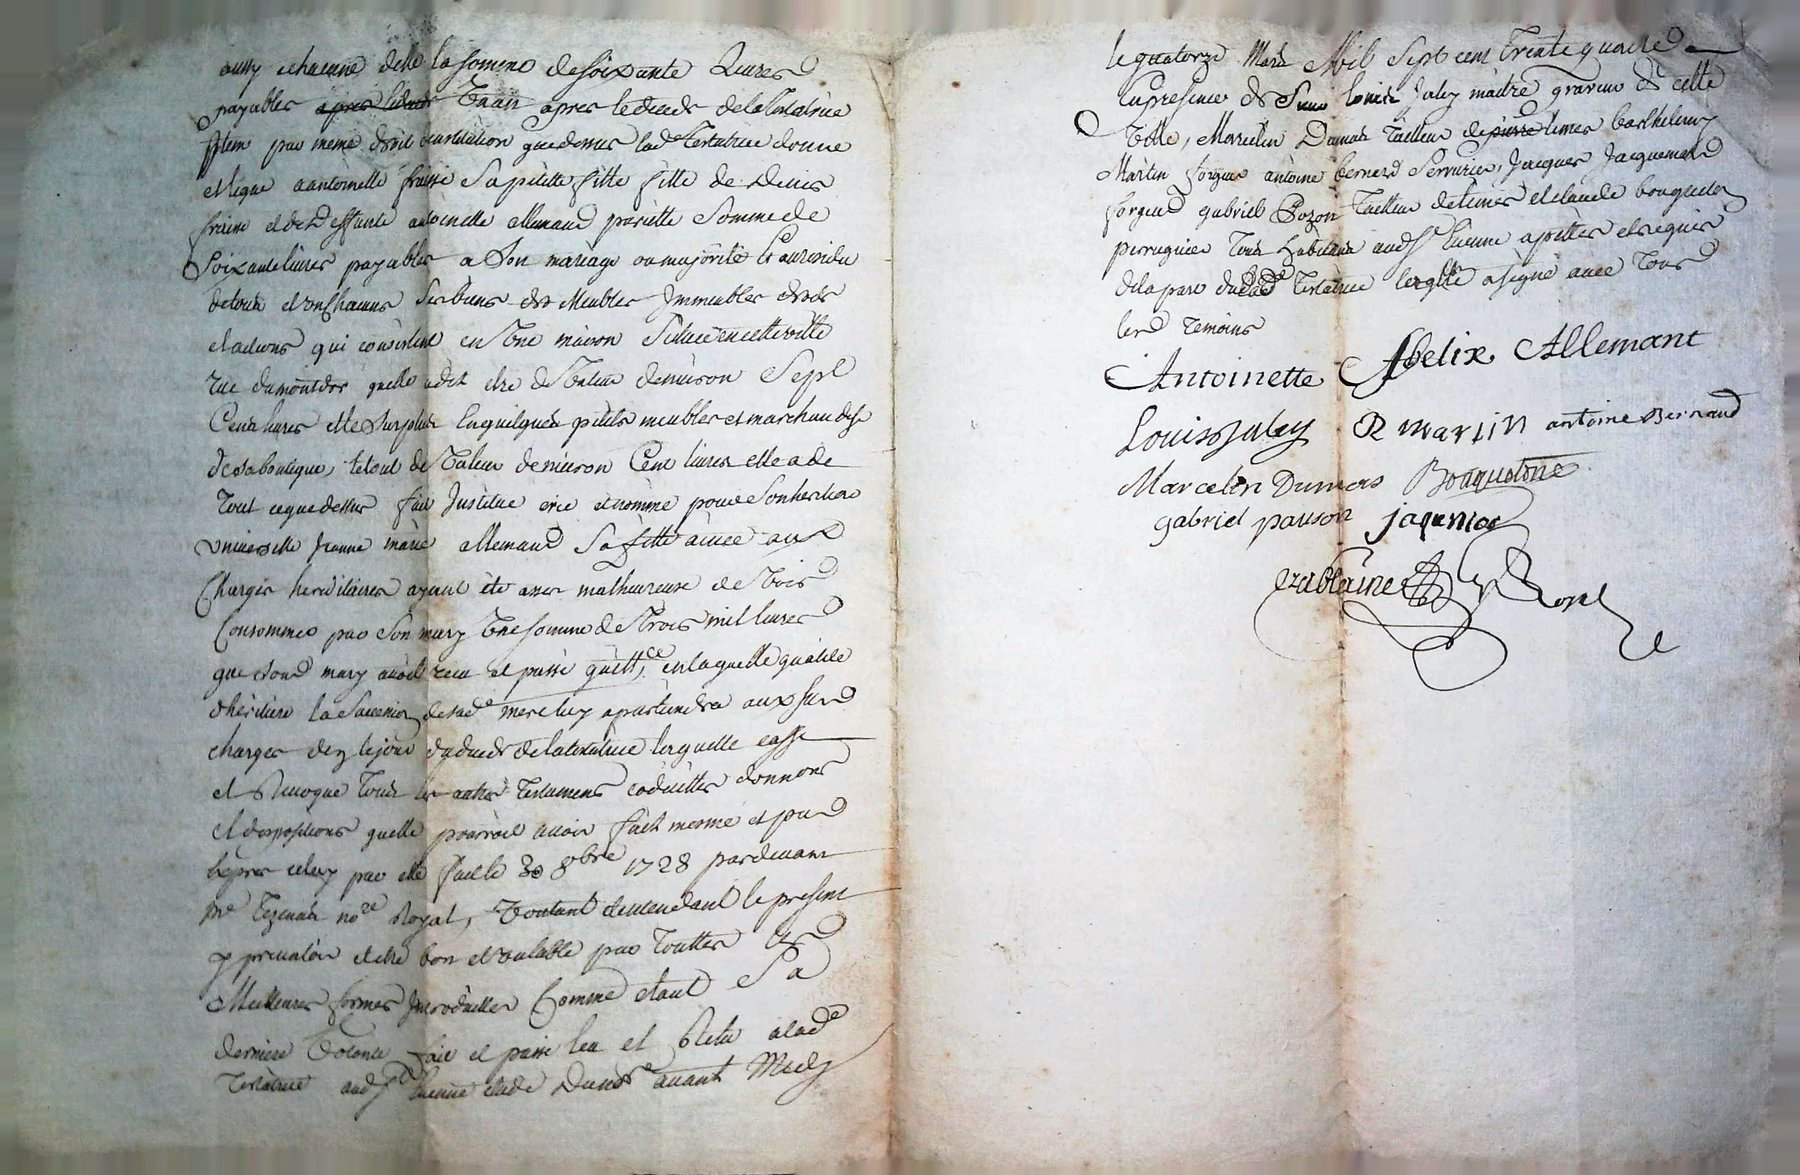 aussy chacune delle la somme de soixante Livres
payables apres ledeces Un an apres le deceds de la Testatrice
Item par meme droit dinstitution que dessus lad.e Testatrice donne
et legue a antoinette fraisse sa petitte fille fille de Denis
fraisse et de deffunte antoinette allemand pareille somme de
soixante livres payables a son mariage ou majorité Et au residu
de tous et un chacuns ses biens et meubles Immeubles droits
et actions qui consistent en Une maison Scituée en cette ville
rue du montdor quelle a dit etre de Valeur denviron Sept
Cents livres et le Surplus En quelques petits meubles et marchandise
de sa boutique, le tout de Valeur denviron Cent livres elle a de
Tout ce que dessus fait Institué crée et nommé pour son heritiere
universelle Jeanne marie allemand Sa fille ainée aux
Charges hereditaires ayant été assez malheureuse de Voir
Consommer par Son mary Une somme de Trois mil livres
que sond mary avoit recu et passé quitt.ce en laquelle qualité
dhéritiere la Succession de lad.e mere luy apartiendra aux susd
charges dez le jour du deceds de la testatrice laquelle casse
et Revoque Tous les autres Testaments codicilles donnons
et dispositions quelle pourroit avoir fait mesme et par
Expres celuy par elle fait le 30 8bre 1728 pardevant
m.e Tezenas no.re Royal, Voulant et entendant le present
prevaloir et etre bon et valable par Touttes les
Meilleures formes Introduittes Comme etant Sa
derniere Volonté fait et passé leu et Releu a lad.e
Testatrice aud S.t Etienne avant Midy
le quatorze Mars Mil Sept cent Trente quatre
En presence de Louis Jaley maitre graveur de cette
Ville, Marcelin Dumas Tailleur de pierre limes Barthelemy
Martin forgeur antoine bernard Serrurier, Jacques Jacquemard
forgeur gabriel Pozon Tailleur de limes et claude bouqueton
perruquier Tous habitans aud S.t Etienne apellés et requis
de la part de lad.e Testatrice laqlle a signé avec Tous
lesd Temoins
Antoinette Felix Allemant
Louis Jaley B martin antoine Bernard
Marcelin Dumas Bouquetone
gabriel pauson jaqemar